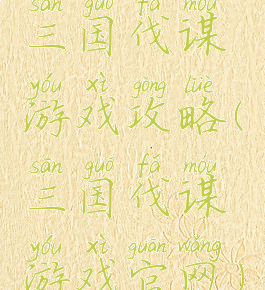 sān guó fá móu
三国伐谋
yóu xì gōng lüè
游戏攻略(
sān guó fá móu
三国伐谋
yóu xì guān wǎng
游戏官网)